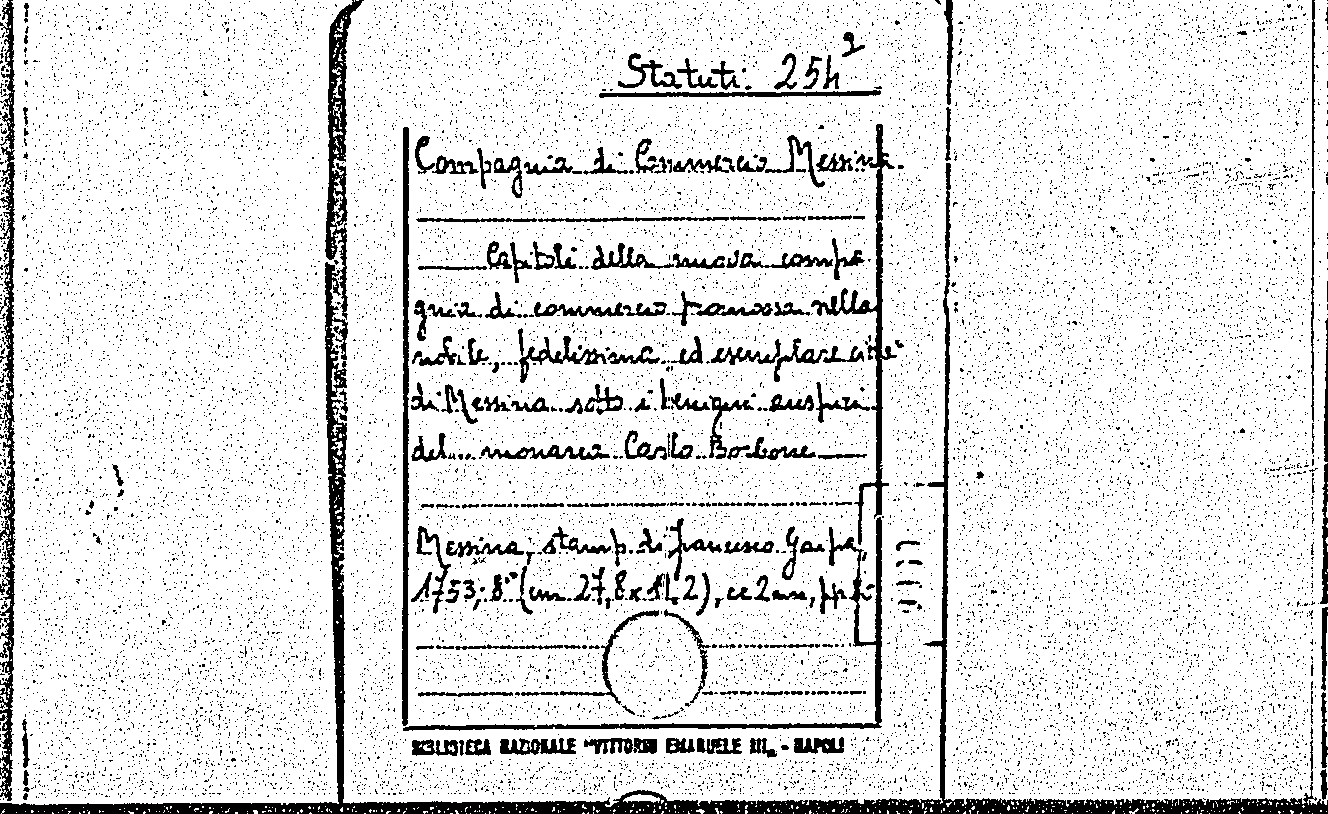 Statuti: 25h²
Compagnia di Commercio Messina.
Capitoli della nuova compa
gnia di commercio promossa nella
nobile, fedelissima, ed esemplare citta'
di Messina sotto i benigni auspici
del monarca Carlo Borbone
Messina, stamp. di Francesco Gaipa,
1753; 8° (cm 27,8 x 11,2), cc 2 nn, pp
BIBLIOTECA NAZIONALE "VITTORIO EMANUELE III„ - NAPOLI